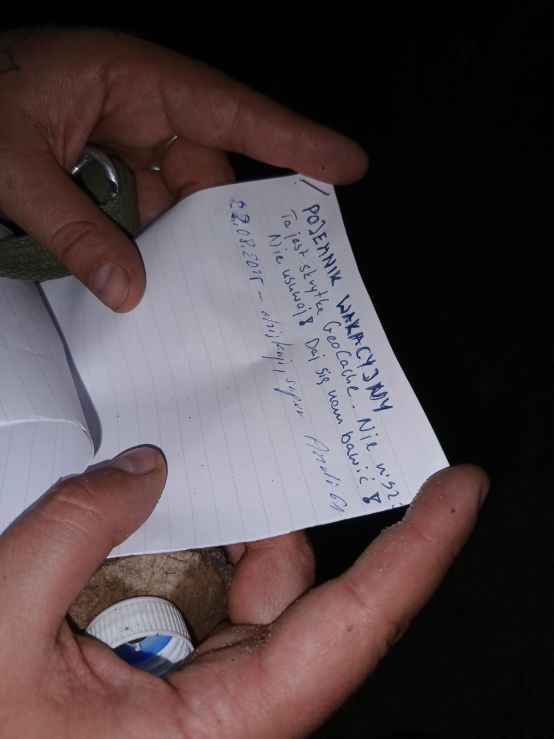 POJEMNIK WAKACYJNY
To jest skrytka GeoCache. Nie nisz
Nie usuwaj! Daj się nam bawić!
22.08.2025 – dziękuję, super